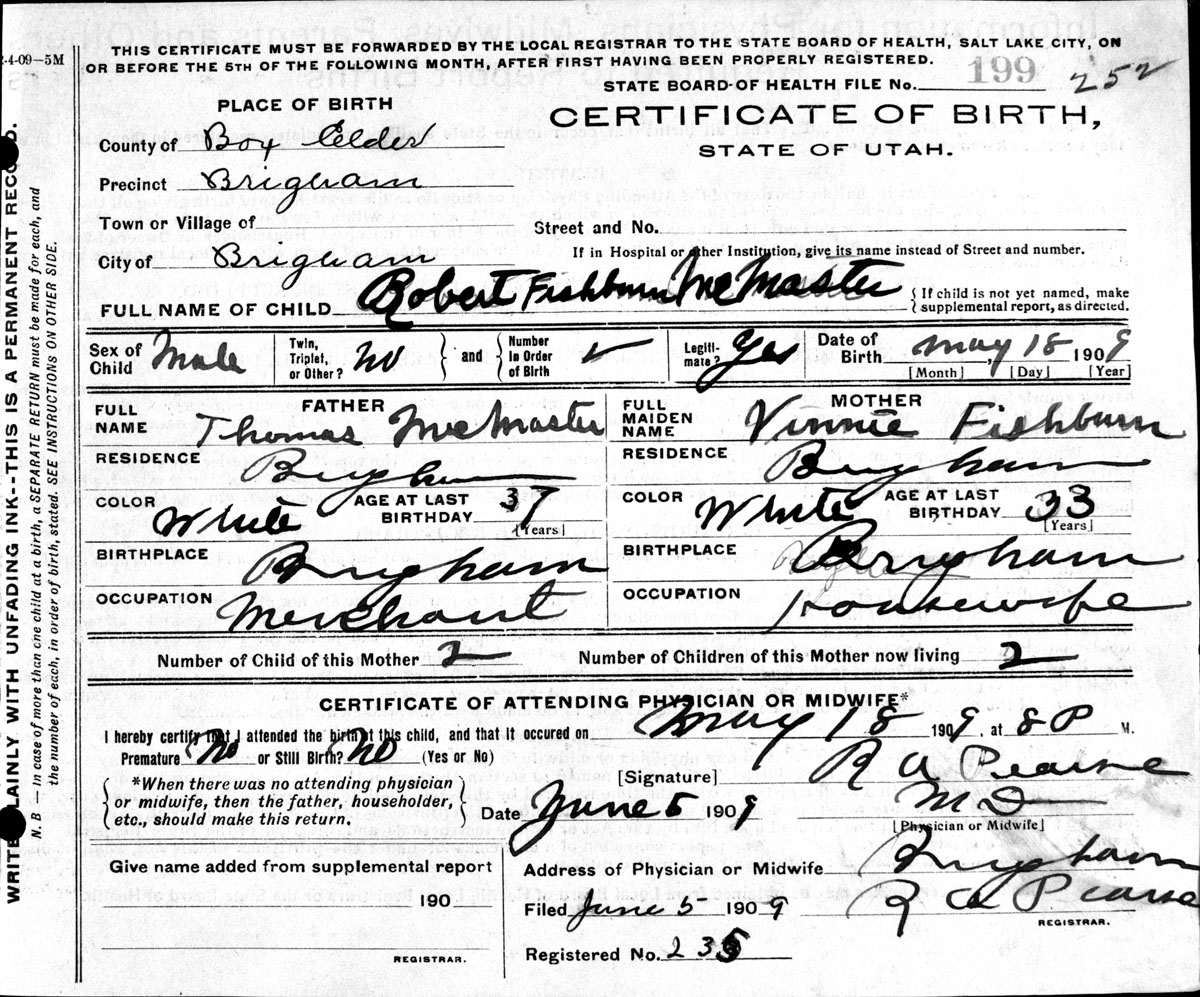 4-09-5M
THIS CERTIFICATE MUST BE FORWARDED BY THE LOCAL REGISTRAR TO THE STATE BOARD OF HEALTH, SALT LAKE CITY, ON
OR BEFORE THE 5TH OF THE FOLLOWING MONTH, AFTER FIRST HAVING BEEN PROPERLY REGISTERED.
STATE BOARD OF HEALTH FILE No. 199 252
PLACE OF BIRTH
CERTIFICATE OF BIRTH,
STATE OF UTAH.
County of Box Elder
Precinct Brigham
Town or Village of
Street and No.
City of Brigham
If in Hospital or other Institution, give its name instead of Street and number.
FULL NAME OF CHILD Robert Fishburn McMaster
{If child is not yet named, make
supplemental report, as directed.
Sex of Child Male
Twin, Triplet, or Other? No
and
Number In Order of Birth
Legiti-mate? Yes
Date of Birth May 18 1909
[Month] [Day] [Year]
FATHER
FULL NAME Thomas McMaster
RESIDENCE Brigham
COLOR White AGE AT LAST BIRTHDAY 37 [Years]
BIRTHPLACE Brigham
OCCUPATION Merchant
MOTHER
FULL MAIDEN NAME Vinnie Fishburn
RESIDENCE Brigham
COLOR White AGE AT LAST BIRTHDAY 33 [Years]
BIRTHPLACE Brigham
OCCUPATION Housewife
Number of Child of this Mother 2
Number of Children of this Mother now living 2
CERTIFICATE OF ATTENDING PHYSICIAN OR MIDWIFE*
I hereby certify that I attended the birth of this child, and that it occured on May 18 1909, at 8 P M.
Premature No or Still Birth? No (Yes or No)
[Signature] R A Pearse
M D
[Physician or Midwife]
*When there was no attending physician
or midwife, then the father, householder,
etc., should make this return.
Date June 5 1909
Give name added from supplemental report
190
REGISTRAR.
Address of Physician or Midwife Brigham
Filed June 5 1909 R A Pearse
REGISTRAR.
Registered No. 235
WRITE PLAINLY WITH UNFADING INK--THIS IS A PERMANENT RECORD.
N. B — In case of more than one child at a birth, a SEPARATE RETURN must be made for each, and
the number of each, in order of birth, stated. SEE INSTRUCTIONS ON OTHER SIDE.